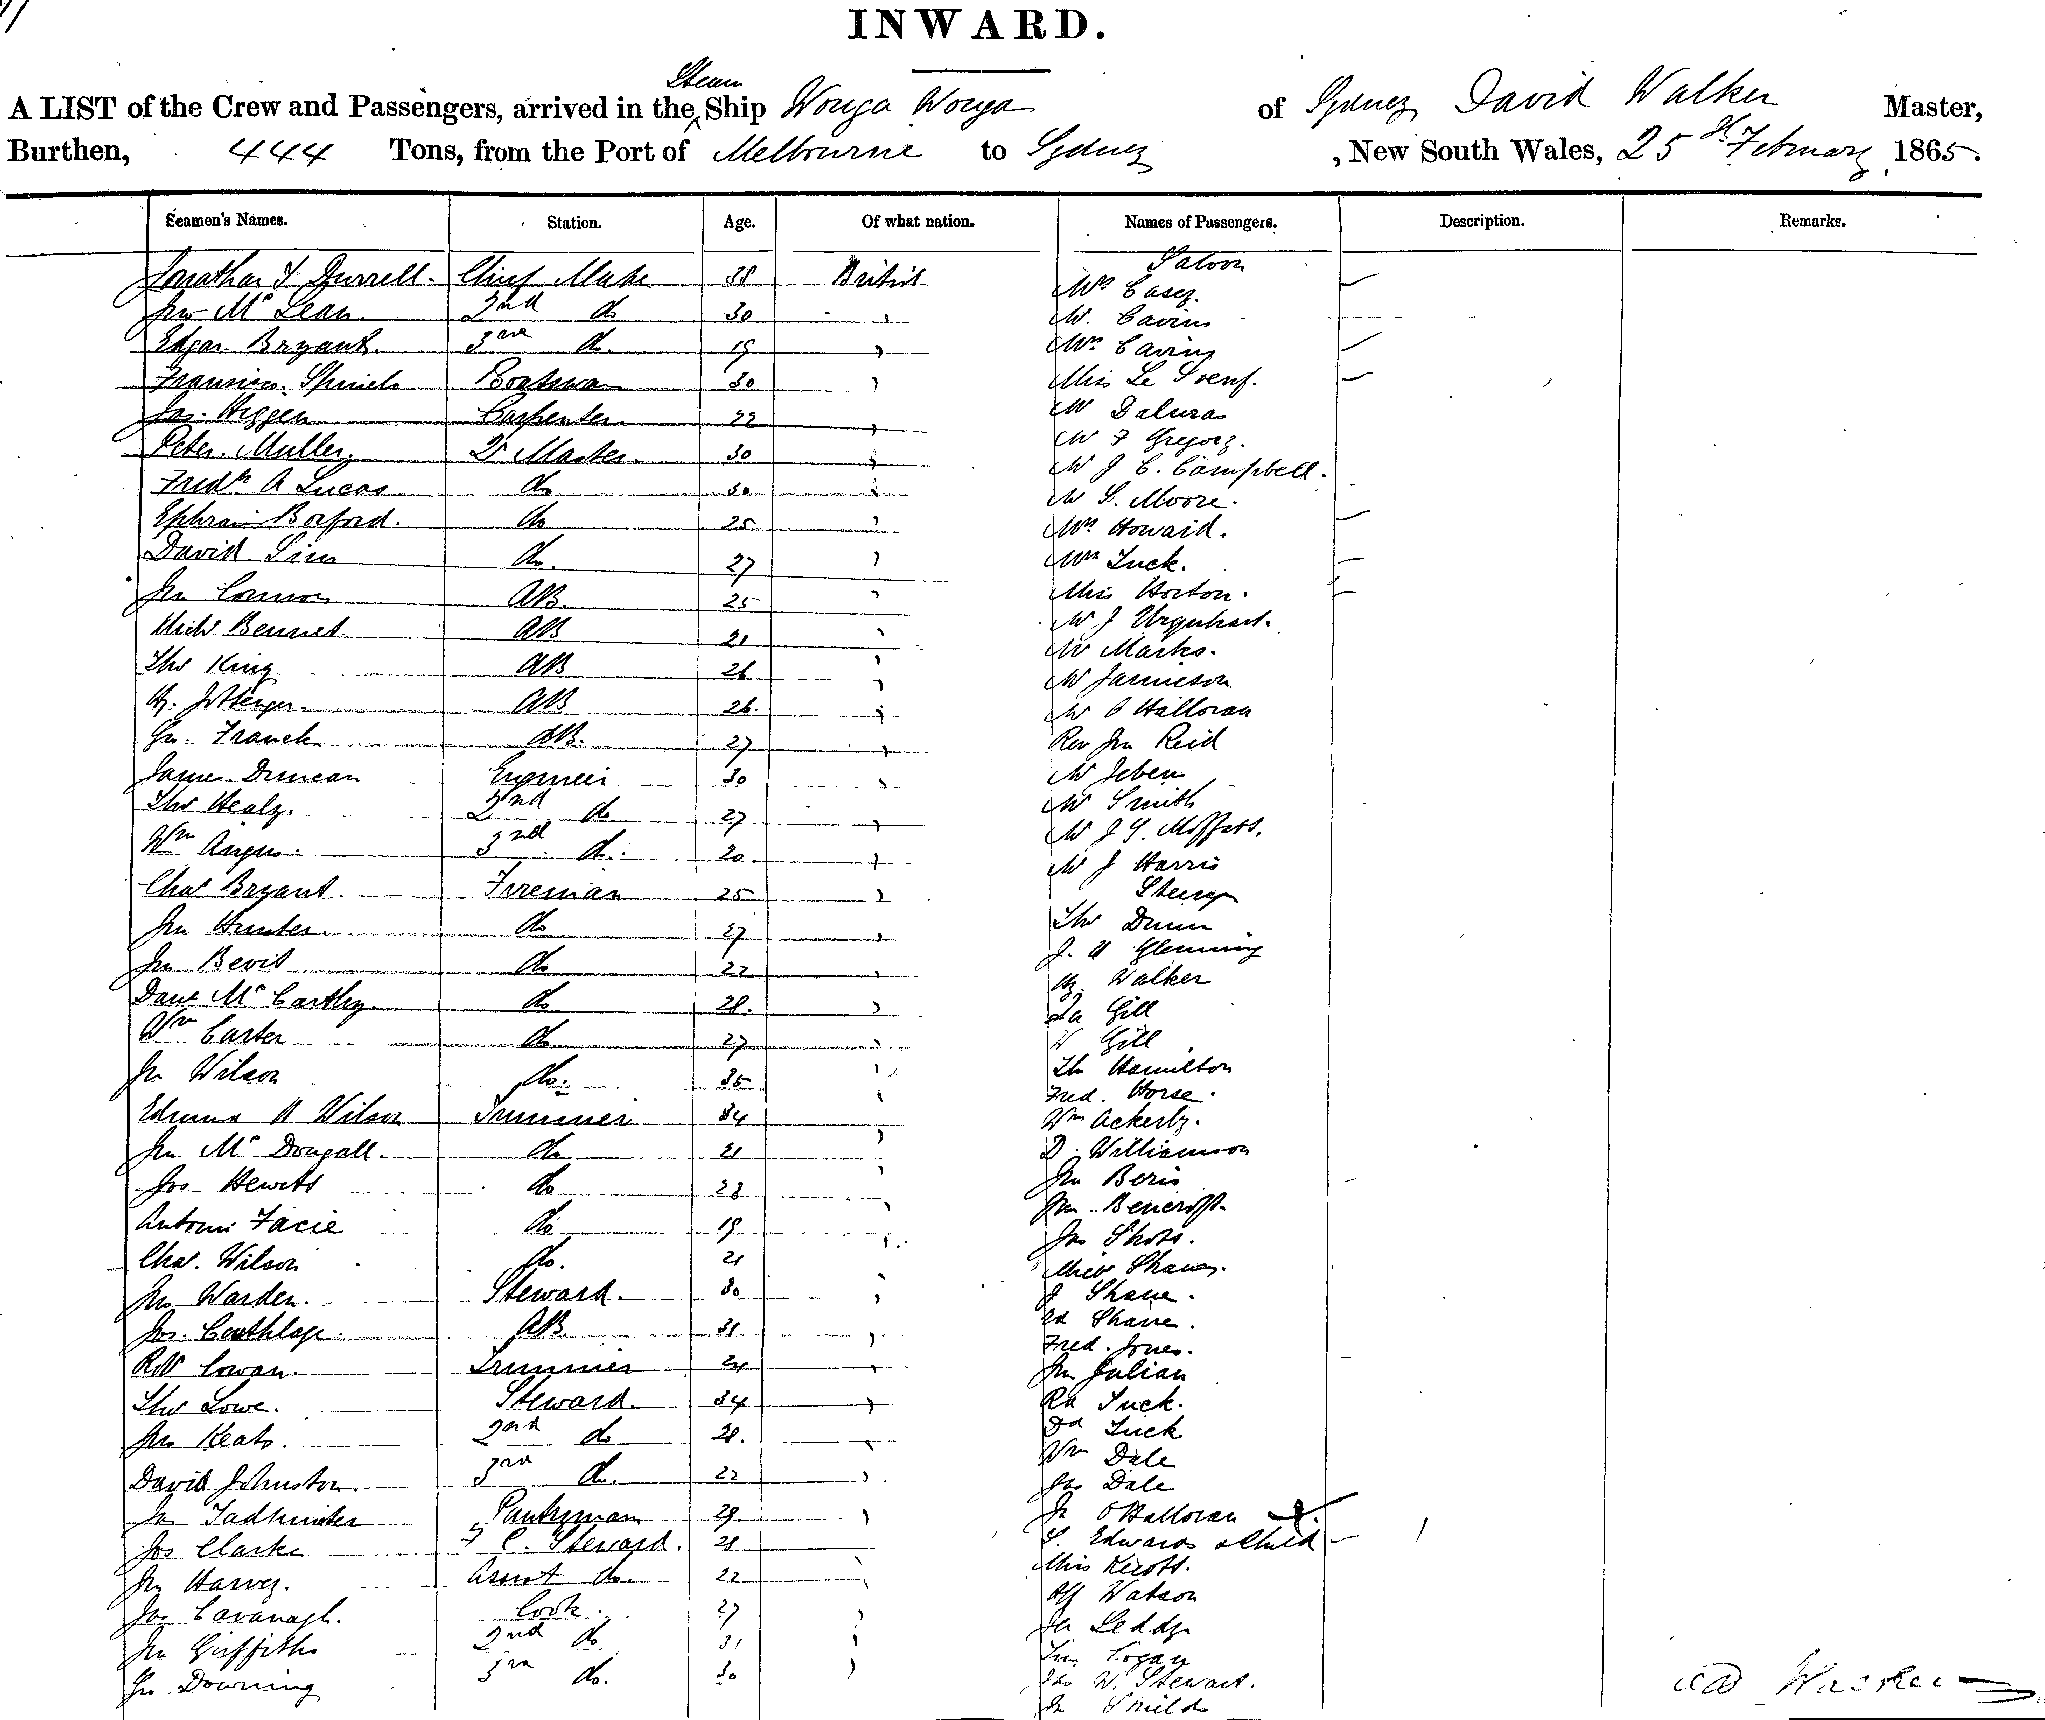 INWARD.
Steam
A LIST of the Crew and Passengers, arrived in the Ship Wonga Wonga of Sydney David Walker Master,
Burthen, 444 Tons, from the Port of Melbourne to Sydney , New South Wales, 25th February 1865.
Seamen's Names. Station. Age. Of what nation. Names of Passengers. Description. Remarks.
Saloon
Jonathan S Durrell. Chief Mate 38 British Mrs Casey.
Jno Mc Lean 2nd do 30 " Mr Cavins
Edgar Bryant. 3rd do. 19 " Mrs Cavins
Boatswan 30 " Miss Le
Jas. Higgen Carpenter 22 " Mr
Peter Muller Qr Master. 30 " Mr F Gregory.
Fredk A Lucas do 30 " Mr J C. Campbell.
Ephraim Boxford. do 25 " Mr S. Moore.
David Sim do. 27 " Mrs Howard.
Jno Connor AB. 25 " Mrs Tuck.
Michl Bennet AB 21 " Miss Horton.
Thos King AB 26 " Mr J Urquhart.
AB 26. " Mr Marks.
Jno. Franck AB. 27 " Mr Jamieson
James Duncan Engineer 30 " Mr O Halloran
Thos Healy. 2nd do 27 " Rev Jno Reid
Wm Angus. 3rd do. 20 " Mr
Chas Bryant. Fireman 25 " Mr Smith
Jno Hunter. do 27 " Mr J G. Moffatt.
Jno Bevis do 22 " Mr J Harris
Steerage
Danl Mc Carthy. do 28. " Thos Dunn
Wm Carter do 27 " J. Glenning
Jno Wilson do. 35 " Hy. Walker
Edmund H Wilson Trimmer 34 " Gill
Jno Mc Dougall. do 21 " Gill
Jos Hewitt do 28 " Hamilton
Antoni Facie do 19 " Fred. Horse.
Chas. Wilson do. 21 Wm Ackerly.
Jno Warden. Steward. 30 " D. Williamson
Jos. AB 31 " Jno Beris
Robt Cowan. Trimmer 24 " Jno Bencroft.
Thos Lowe. Steward. 34 " Jas Shots.
Jno Keats. 2nd do 28. " J Shane.
David Johnston. 3rd do. 22 " Shane.
Jas Tadhunter Pantryman 29 " Fred. Jones.
Jos Clarke F C. Steward. 28 Jno Julian
Jno Harvey. Assist do. 22 Rd Tuck.
Jas Cavanagh. Cook. 27 " Dd Tuck
Jno Griffiths 2nd do 31 " Wm Dale
Jno Downing 3rd do. 30 " Jas Dale
Jno O'Halloran
S. Edwards & Child
Miss
Alf Watson
Logan
Jas W. Stewart.
Jno
Walker